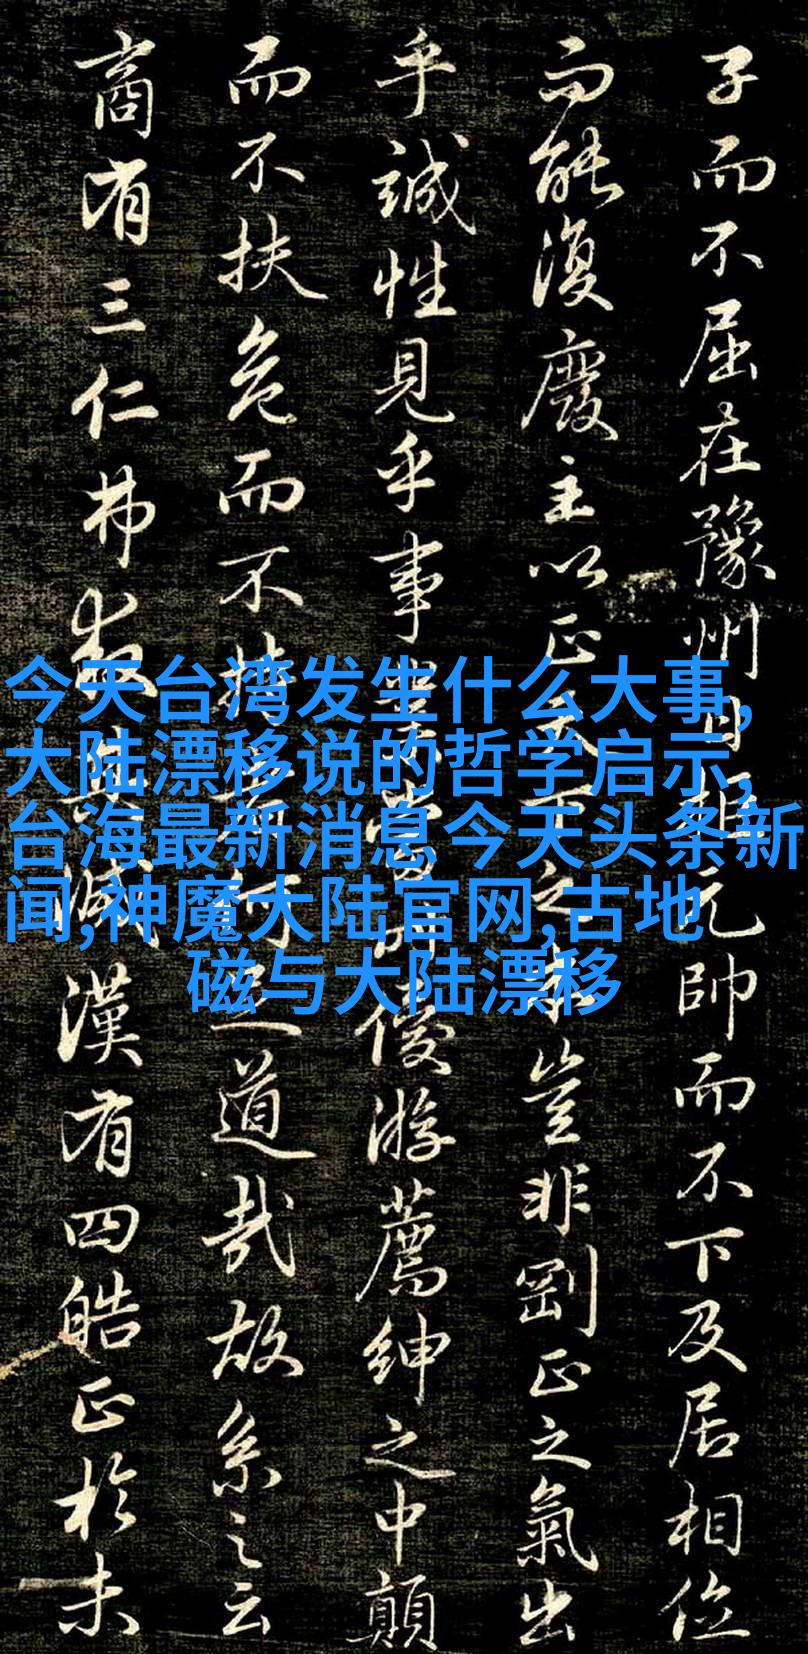 今天台湾发生什么大事,
大陆漂移说的哲学启示,
台海最新消息今天头条新
闻,神魔大陆官网,古地
磁与大陆漂移
子而不屈在豫州日拒元帥而不下及居相位
而能復廢主以正天下之本豈非剛正之氣出
乎誠性見乎事業當時優游薦紳之中顛
而不扶危而不持者何足道哉故系之云
商有三仁弗救其滅漢有四皓正於未